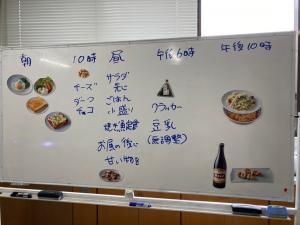 朝
10時
チーズ
ダーク
チョコ
昼
サラダ
先に
ごはん
小盛り
焼き魚定食
お昼の後に
甘い物を
午後6時
クラッカー
豆乳
(無調整)
午後10時